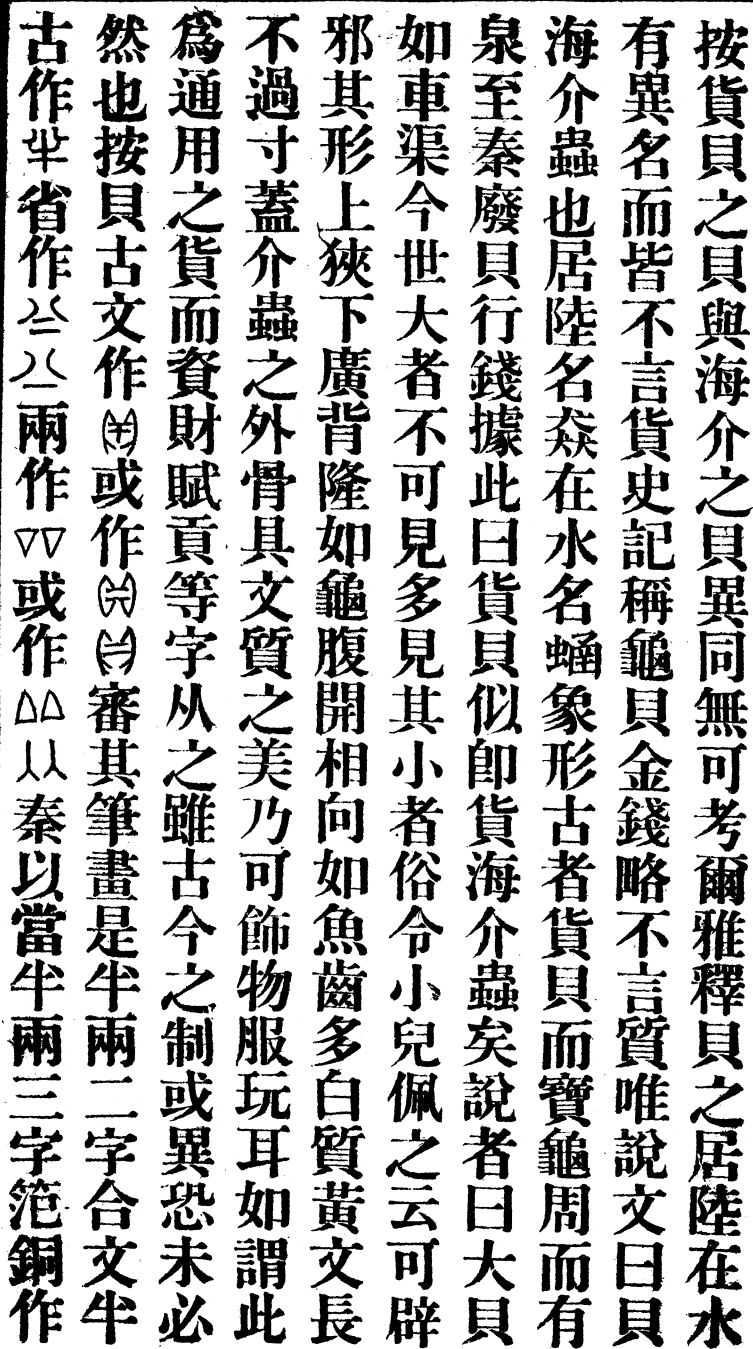 按貨貝之貝與海介之貝異同無可考爾雅釋貝之居陸在水
有異名而皆不言貨史記稱龜貝金錢略不言質唯說文曰貝
海介蟲也居陸名猋在水名蜬象形古者貨貝而寶龜周而有
泉至秦廢貝行錢據此曰貨貝似卽貨海介蟲矣說者曰大貝
如車渠今世大者不可見多見其小者俗令小兒佩之云可辟
邪其形上狹下廣背隆如龜腹開相向如魚齒多白質黃文長
不過寸蓋介蟲之外骨具文質之美乃可飾物服玩耳如謂此
爲通用之貨而資財賦貢等字从之雖古今之制或異恐未必
然也按貝古文作或作審其筆畫是半兩二字合文半
古作省作兩作▽▽或作△△秦以當半兩三字范銅作